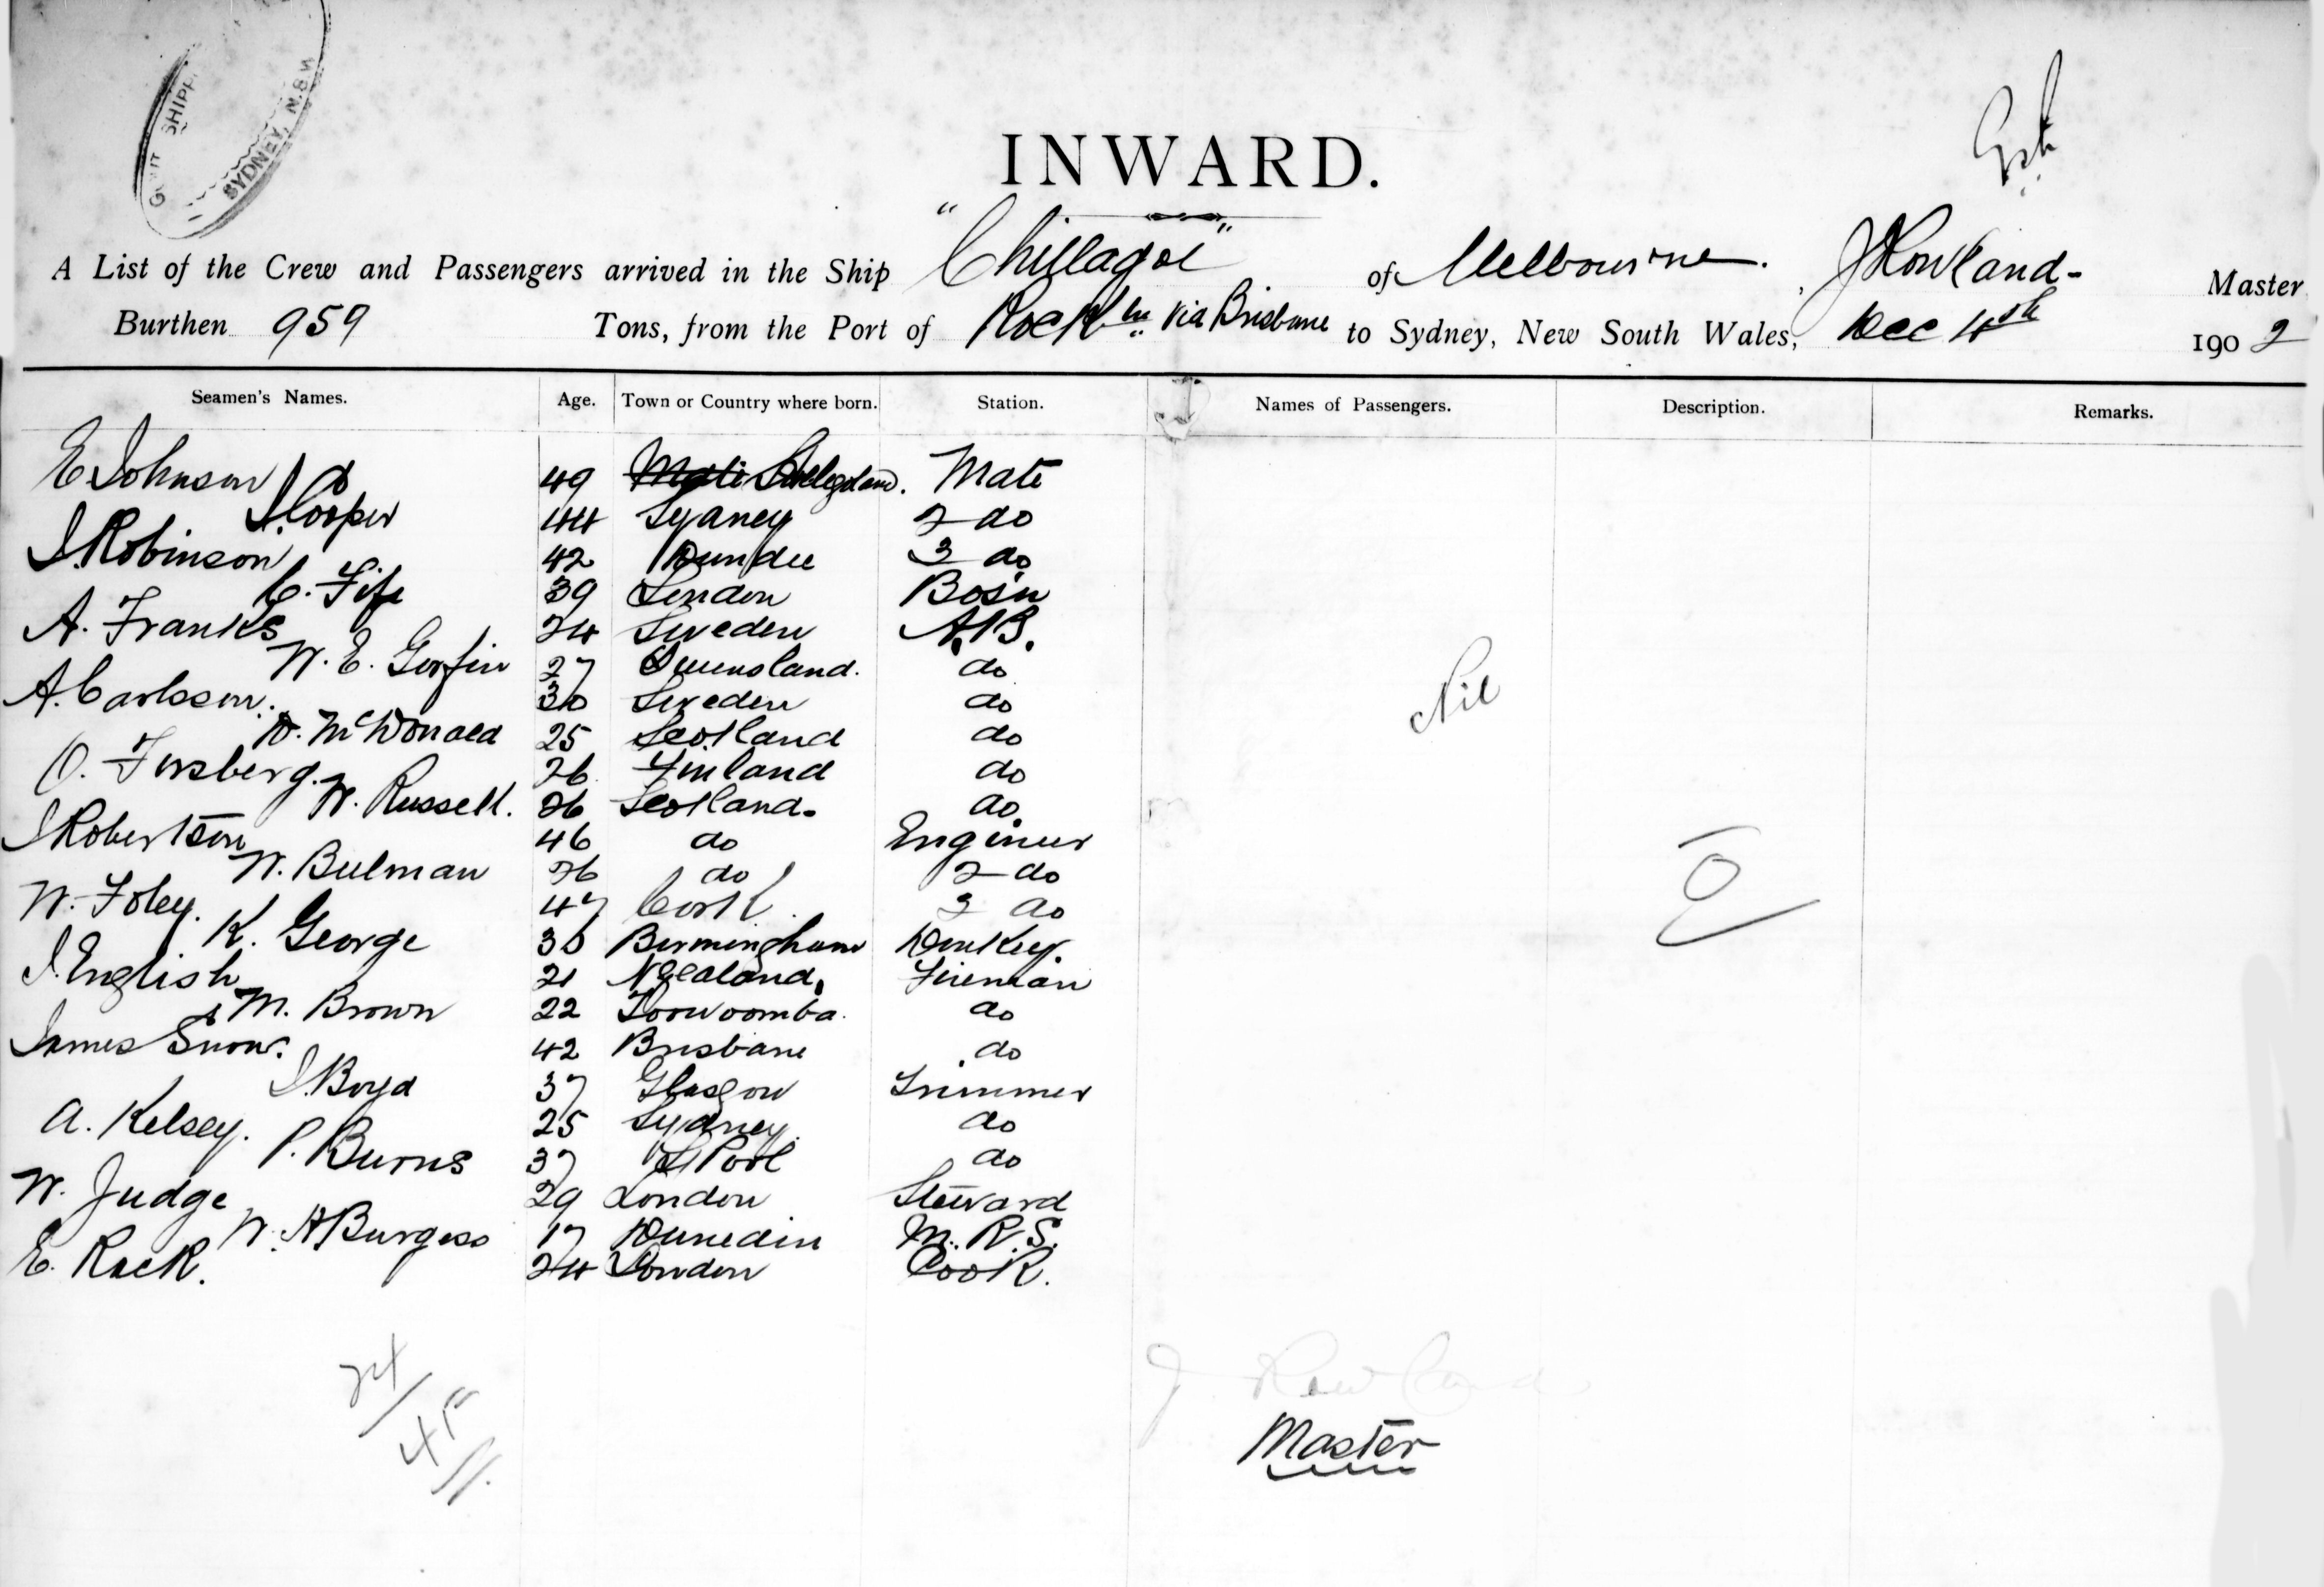 GOV'T SHIPP
SYDNEY, N.S.W.
INWARD.
A List of the Crew and Passengers arrived in the Ship "Chillagoe" of Melbourne. , J Rowland - Master
Burthen 959 Tons, from the Port of Rockh'n via Brisbane to Sydney, New South Wales, Dec 4th 1902
Seamen's Names. Age. Town or Country where born. Station. Names of Passengers. Description. Remarks.
E Johnson 49 Heligoland. Mate
J. Cooper 44 Sydney 2 do
J. Robinson 42 Dundee 3 do
C. Fife 39 London Bos'n
A. Franks 24 Sweden A.B.
W. E. Gorfin 27 Queensland. do
A. Carlsson. 30 Sweden do
D. McDonald 25 Scotland do
O. Forsberg. 26 Finland do
W. Russell. 26 Scotland. do
J Robertson 46 do Engineer
W. Bulman 26 do 2 do
W. Foley. 47 Cork 3 do
K. George 30 Birmingham Donkey.
J. English 21 N Zealand. Fireman
M. Brown 22 Toowoomba. do
James Snow. 42 Brisbane do
J. Boyd 37 Glasgow Trimmer
A. Kelsey. 25 Sydney. do
P. Burns 37 L'Pool do
W. Judge 29 London Steward
W. A Burgess 17 Dunedin M. R. S.
E. Rack. 24 London Cook.
Nil
24/
45
J Rowland
Master